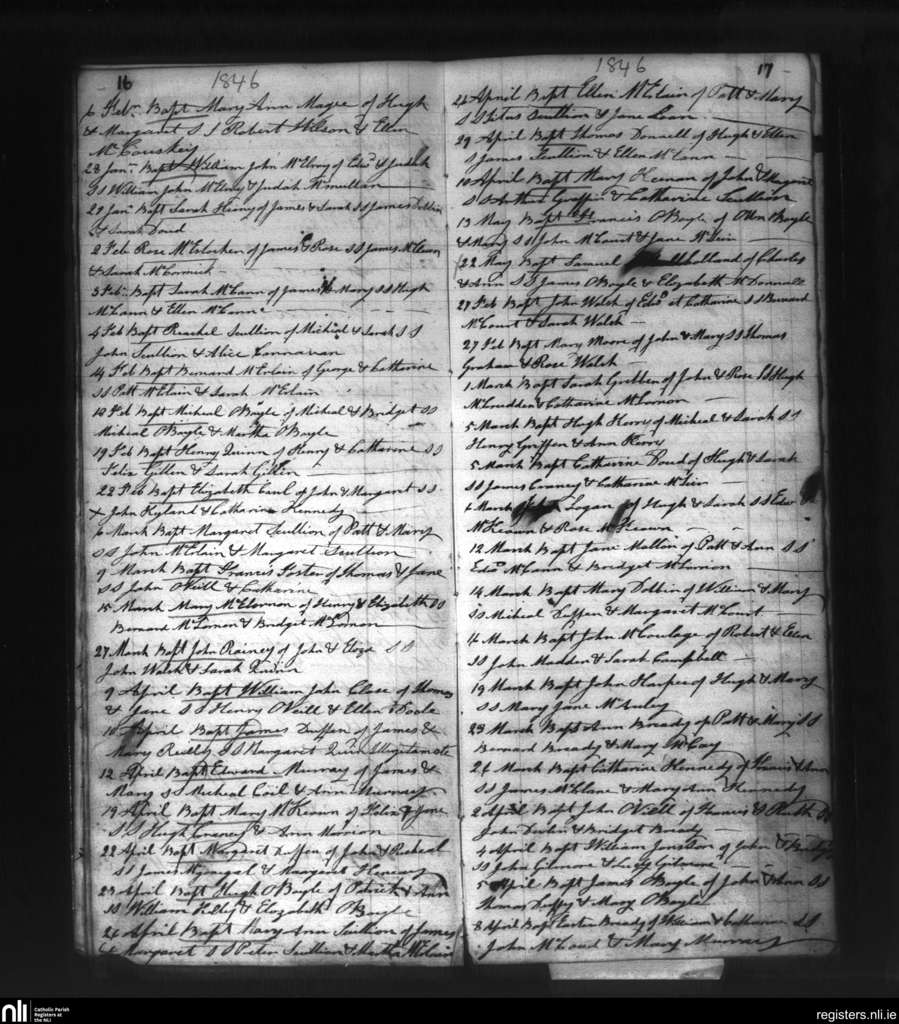 16 1846
6 Feb. Bapt Mary Ann Magee of Hugh
& Margaret S S Robert Wilson & Ellen
28 Jan. Bapt William John McElroy of Edwd & Judith
SS William John McElroy & Judith
29 Jan. Bapt Sarah Heany of James & Sarah SS James Dobbin
& Sarah Doud
2 Feb Rose McClocken of James & Rose SS James
& Sarah McCormick
3 Feb. Bapt Sarah McCann of James & Mary SS Hugh
McCann & Ellen McCann
4 Feb Bapt Reachel Scullion of Micheal & Sarah S S
John Scullion & Alice Connavan
14 Feb Bapt Bernard McErlain of George & Catherine
SS Patt McElain & Sarah McErlain
18 Feb Bapt Micheal OBoyle of Micheal & Bridget SS
Micheal OBoyle & Martha OBoyle
19 Feb Bapt Henry Quinn of Henry & Catharine SS
Felix Gillen & Sarah Gillin
22 Feb Bapt Elizabeth of John & Margaret SS
John Hyland & Catharine Kennedy
6 March Bapt Margaret Scullion of Patt & Mary
SS John McErlain & Margaret Scullion
9 March Bapt Francis Foster of Thomas & Jane
SS John ONeill & Catharine
15 March Mary of Henry & Elizabeth SS
Bernard McLornon & Bridget McLornon
27 March Bapt John Rainey of John & Eliza SS
John Walsh & Sarah Quinn
9 April Bapt William John Close of Thomas
& Jane SS Henry ONeill & Ellen OToole
10 April Bapt James Duffen of James &
Mary Reilly SS Margaret Quin Illegitamate
12 April Bapt Edward Murray of James &
Mary SS Micheal Coil & Ann Murray
19 April Bapt Mary McKeown of Felix & Jane
SS Hugh Craney & Ann Marian
22 April Bapt Margaret Duffen of John & Racheal
SS James & Margaret
23 April Bapt Hugh OBoyle of Patrick & Ann
SS William Killy & Elizabeth OBoyle
24 April Bapt Mary Ann Scullion of James
& Margaret SS Peter Scullion & Martha McErlain
1846 17
24 April Bapt Ellen McErlain of Patt & Mary
SS Scullion & Jane
29 April Bapt Thomas Donnell of Hugh & Ellen
S James Scullion & Ellen McCann
10 April Bapt Mary Keenan of John & Margaret
SS Arthur Griffin & Catharine Scullion
13 May Bapt Francis OBoyle of OBoyle
& Mary SS John McCourt & Jane
22 May Bapt Samuel Mulholland of Charles
& Ann SS James OBoyle & Elizabeth McDonnell
27 Feb Bapt John Walsh of Edwd et Catharine SS Bernard
McCourt & Sarah Walsh
27 Feb Bapt Mary Moore of John & Mary SS Thomas
Graham & Rose Walsh
1 March Bapt Sarah Gribben of John & Rose SS Hugh
McCrudden & Catharine McLornon
5 March Bapt Hugh Henry of Micheal & Sarah SS
Henry Griffen & Ann
5 March Bapt Catharine Doud of Hugh & Sarah
SS James Craney & Catharine
6 March Logan of Hugh & Sarah SS
McKeown & Rose McKeown
12 March Bapt Jane Mallin of Patt & Ann SS
Edwd McCann & Bridget McLornon
14 March Bapt Mary Dobbin of William & Mary
SS Micheal Duffen & Margaret McCourt
14 March Bapt John of Robert & Ellen
SS John Madden & Sarah Campbell
19 March Bapt John Harper of Hugh & Mary
SS Mary Jane McAuley
23 March Bapt Ann Bready of Patt & Mary SS
Bernard Bready & Mary McCay
26 March Bapt Catharine Kennedy of Francis & Ann
SS James McClane & Mary Ann Kennedy
2 April Bapt John ONeill of Francis & Ruth SS
John Devlin & Bridget Bready
4 April Bapt William Jonston of John & Bridget
SS John Gilmore & Lucy Gilmore
5 April Bapt James OBoyle of John & Ann SS
Thomas Duffy & Mary OBoyle
8 April Bapt Bready of William & Catharine SS
John McCourt & Mary Murray
nli Catholic Parish
Registers at
the NLI
registers.nli.ie